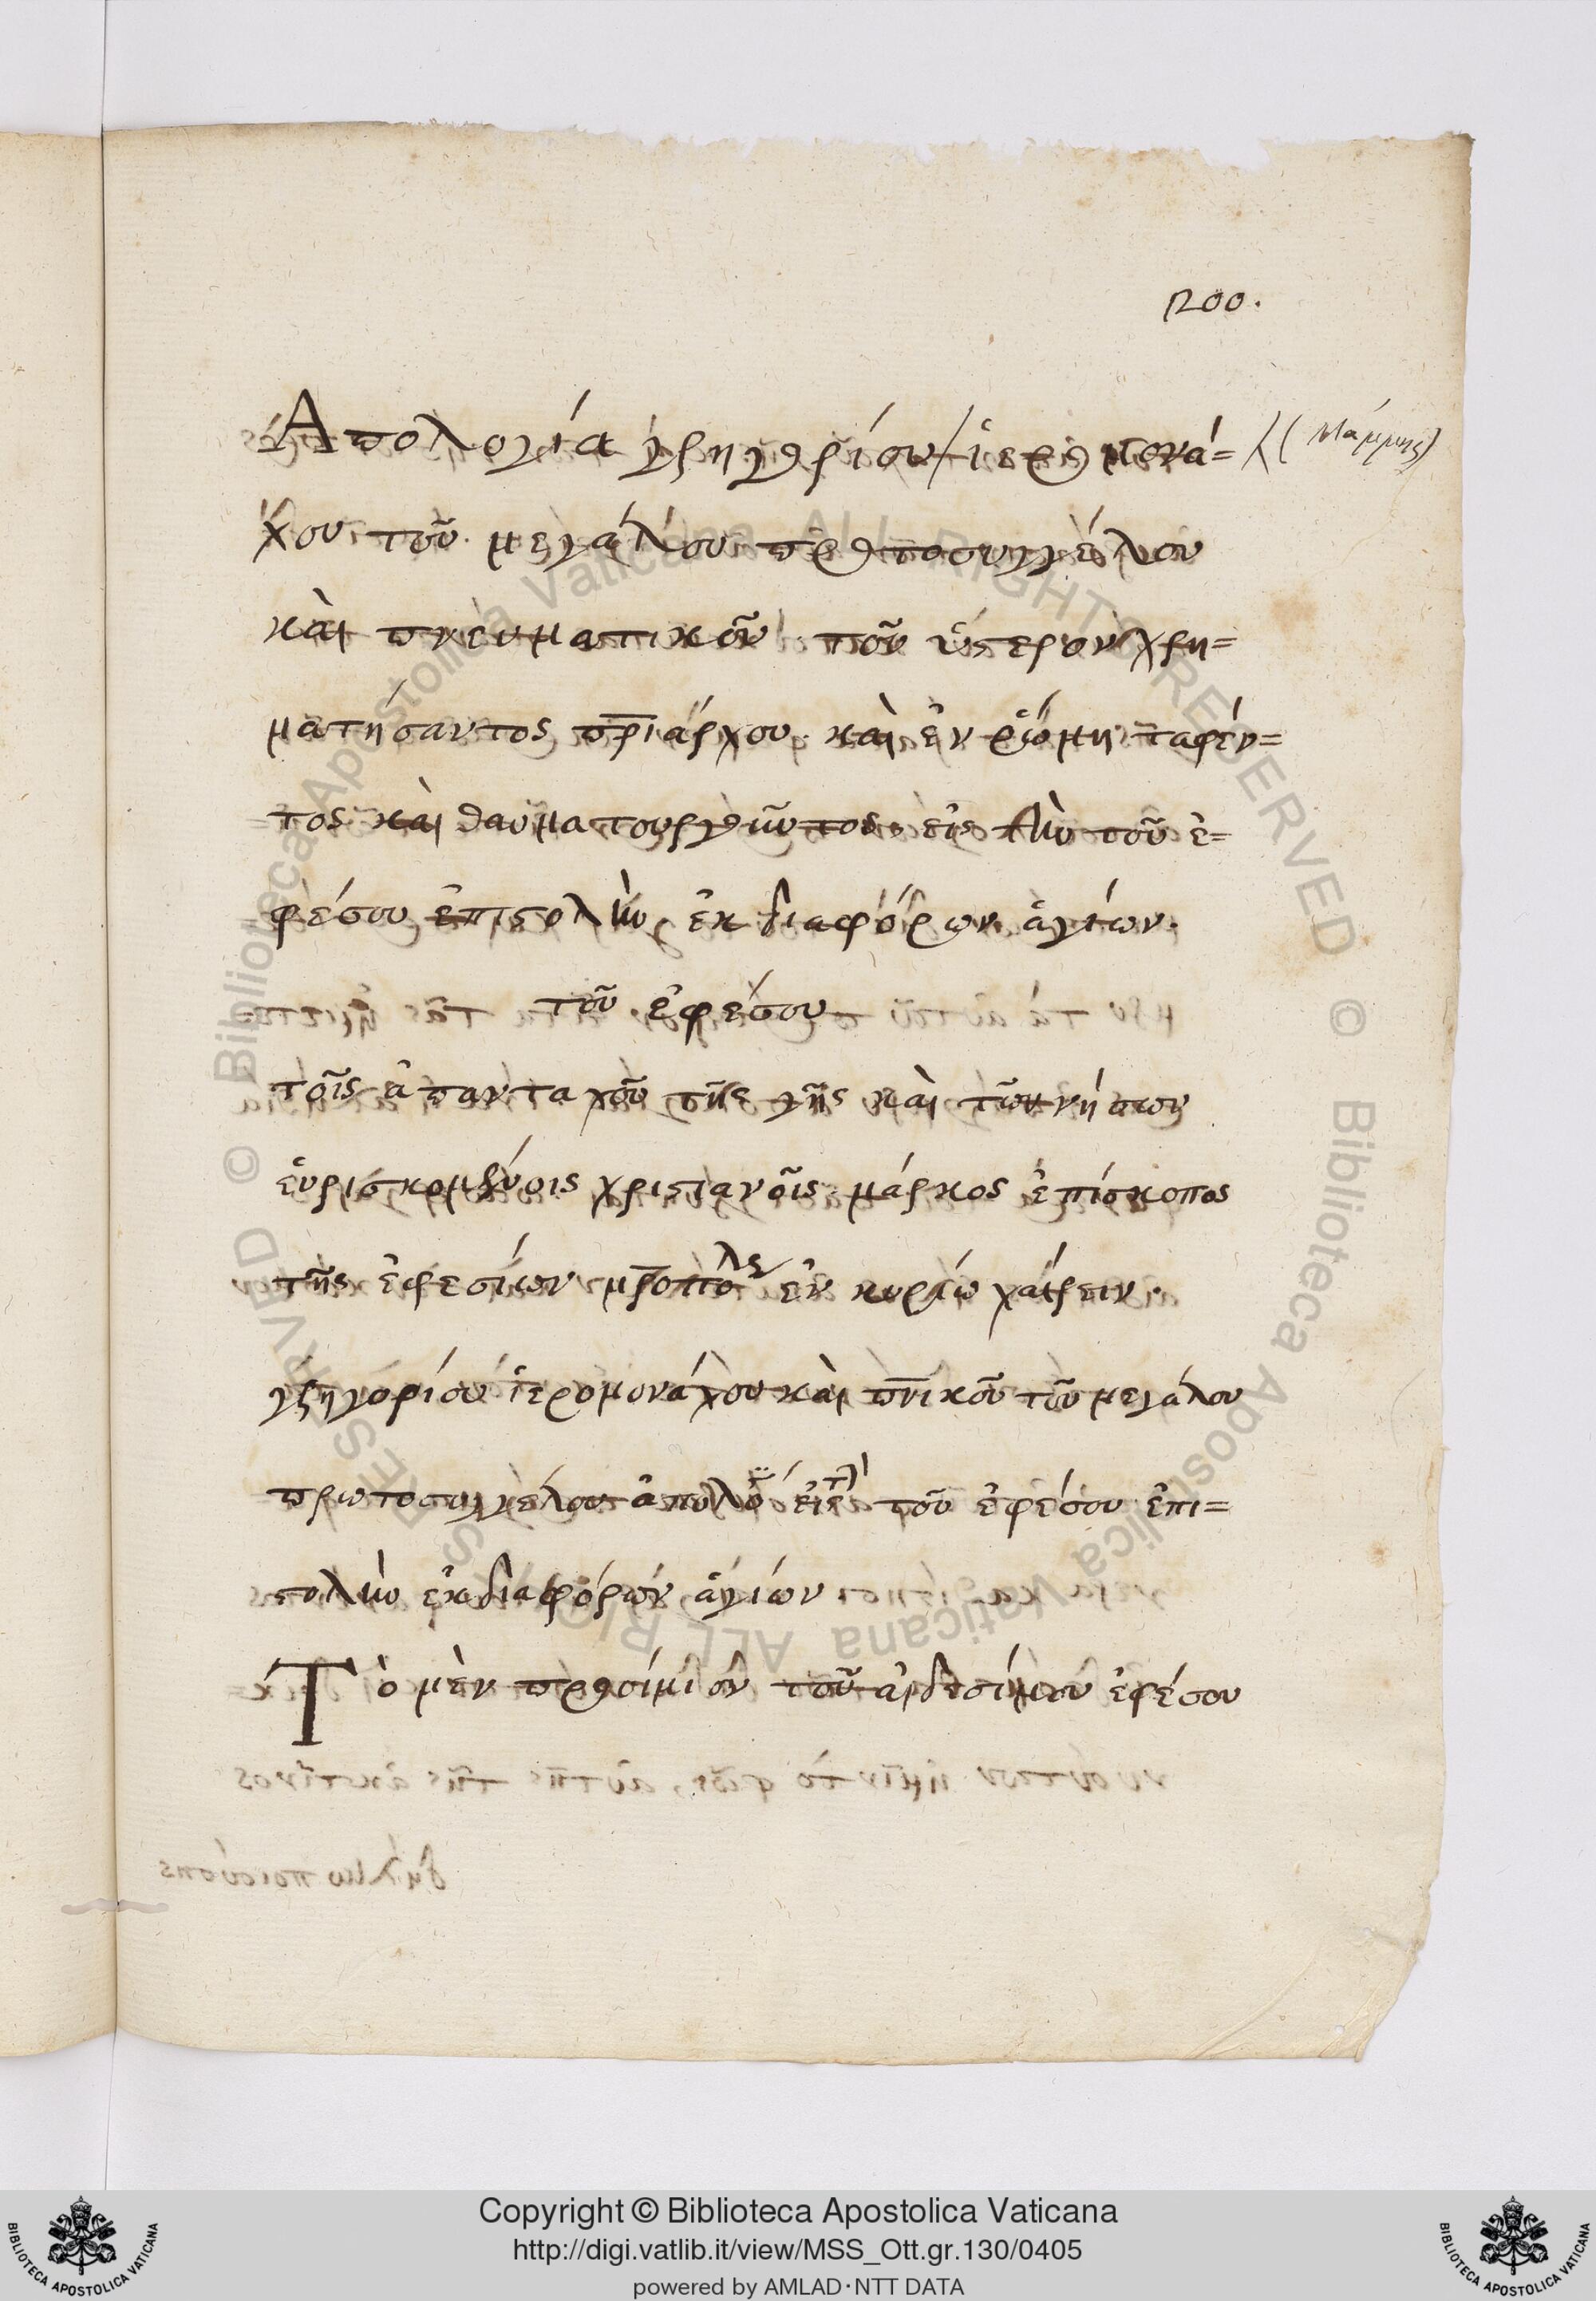 200.
Ἀπολογία γρηγορίου / ἱερομονά= /( Μάμμης)
χου τοῦ μεγάλου πρωτοσυγγέλου
καὶ πνευματικοῦ τοῦ ὕστερον χρη=
ματήσαντος πριάρχου. καὶ ἐν ῥώμη ταφέν=
τος καὶ θαυματουργοῦντος. εἰς τὴν τοῦ ἐ=
φέσου ἐπιστολὴν, ἐκ διαφόρων ἁγίων.
τοῦ ἐφέσου
τοῖς ἁπανταχοῦ τῆς γῆς καὶ τῶν νήσων
εὑρισκομένοις χριστιανοῖς μάρκος ἐπίσκοπος
τῆς ἐφεσίων μροπόλς ἐν κυρίω χαίρειν.
γρηγορίου ἱερομονάχου καὶ πνικοῦ τοῦ μεγάλου
πρωτοσυγγέλου τοῦ ἐφέσου ἐπι=
στολὴν ἐκ διαφόρων ἁγίων
Τὸ μὲν προοίμιον τοῦ αἰδεσίμου ἐφέσου
© Biblioteca Apostolica Vaticana ALL RIGHTS RESERVED © Biblioteca Apostolica Vaticana ALL RIGHTS RESERVED
Copyright © Biblioteca Apostolica Vaticana
http://digi.vatlib.it/view/MSS_Ott.gr.130/0405
powered by AMLAD·NTT DATA
BIBLIOTECA APOSTOLICA VATICANA
BIBLIOTECA APOSTOLICA VATICANA